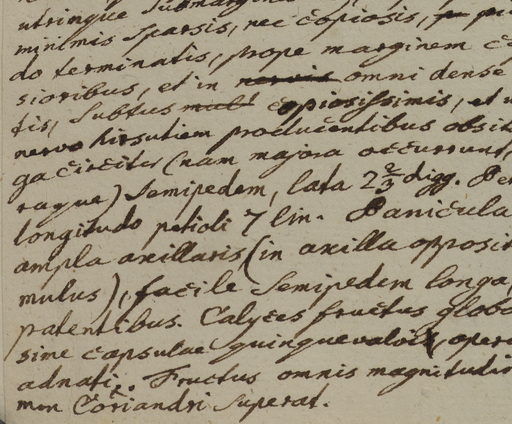 utrinque submargine
minimis sparsis, nec copiosis,
do terminatis, prope marginem c
sioribus, et in nervis omni dense
tis, subtus mult copiosissimis, et u
nervo hirsutiem producentibus obsit
ga circiter (nam majora occurrunt,
raque) Semipedem, lata 2 2/3 digg. Pe
longitudo petioli 7 lin. Panicula
ampla axillaris (in axilla opposit
mulus), facile Semipedem longa,
patentibus. Calyces fructus globo
sime capsulae quinquevalvis, operc
adnati. Fructus omnis magnitudin
men Coriandri superat.